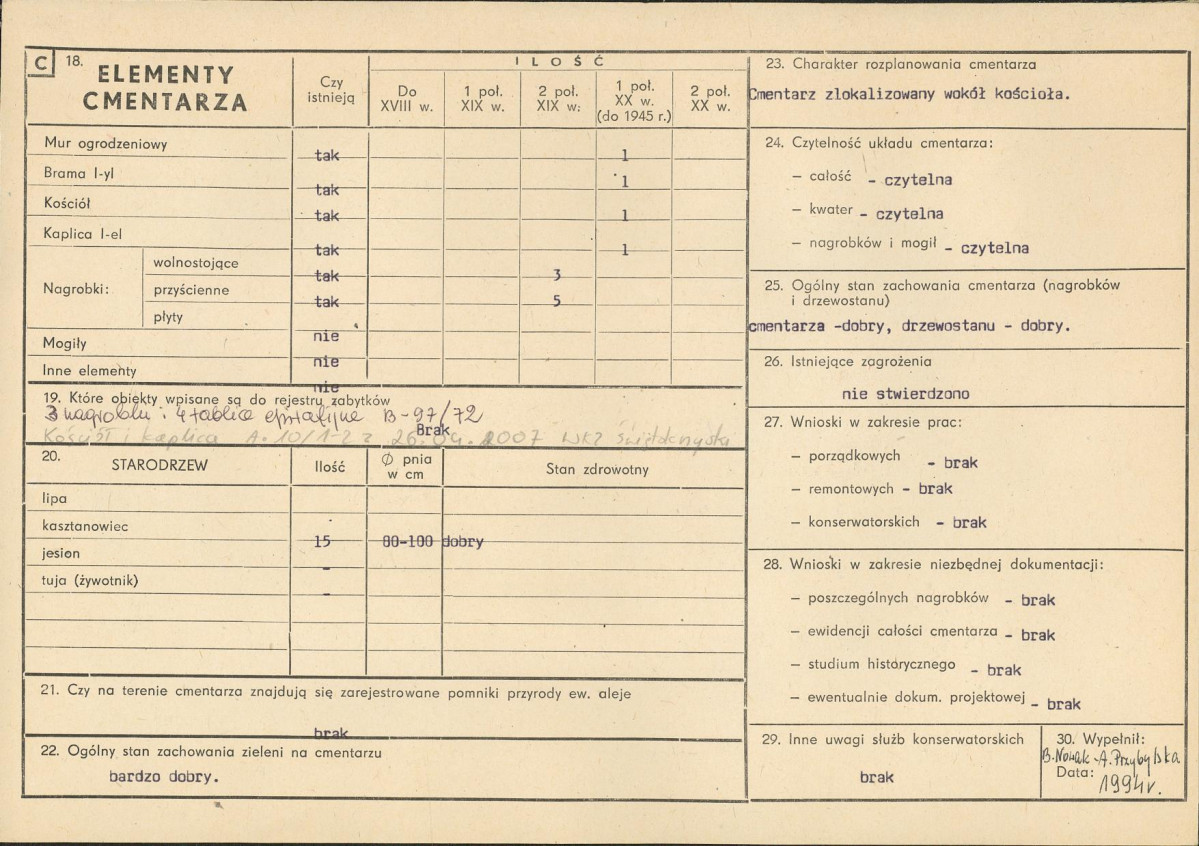 C 18. ELEMENTY CMENTARZA
Czy istnieją
ILOŚĆ
Do XVIII w.
1 poł. XIX w.
2 poł. XIX w.
1 poł. XX w. (do 1945 r.)
2 poł. XX w.
Mur ogrodzeniowy tak 1
Brama I-yl tak 1
Kościół tak 1
Kaplica I-el tak 1
Nagrobki:
wolnostojące tak 3
przyścienne tak 5
płyty nie
Mogiły nie
Inne elementy nie
19. Które obiekty wpisane są do rejestru zabytków
3 nagrobki i 4 tablice epitafijne B-97/72
Brak
Kościół i kaplica A.10/1-2 z 26.04.2007 WKZ
20. STARODRZEW
Ilość
Ø pnia w cm
Stan zdrowotny
lipa
kasztanowiec 15 80-100 dobry
jesion -
tuja (żywotnik) -
21. Czy na terenie cmentarza znajdują się zarejestrowane pomniki przyrody ew. aleje
brak
22. Ogólny stan zachowania zieleni na cmentarzu
bardzo dobry.
23. Charakter rozplanowania cmentarza
Cmentarz zlokalizowany wokół kościoła.
24. Czytelność układu cmentarza:
— całość - czytelna
— kwater - czytelna
— nagrobków i mogił - czytelna
25. Ogólny stan zachowania cmentarza (nagrobków
i drzewostanu)
cmentarza -dobry, drzewostanu - dobry.
26. Istniejące zagrożenia
nie stwierdzono
27. Wnioski w zakresie prac:
— porządkowych - brak
— remontowych - brak
— konserwatorskich - brak
28. Wnioski w zakresie niezbędnej dokumentacji:
— poszczególnych nagrobków - brak
— ewidencji całości cmentarza - brak
— studium historycznego - brak
— ewentualnie dokum. projektowej - brak
29. Inne uwagi służb konserwatorskich
brak
30. Wypełnił:
B.Nowak-A.Przybylska
Data: 1994r.